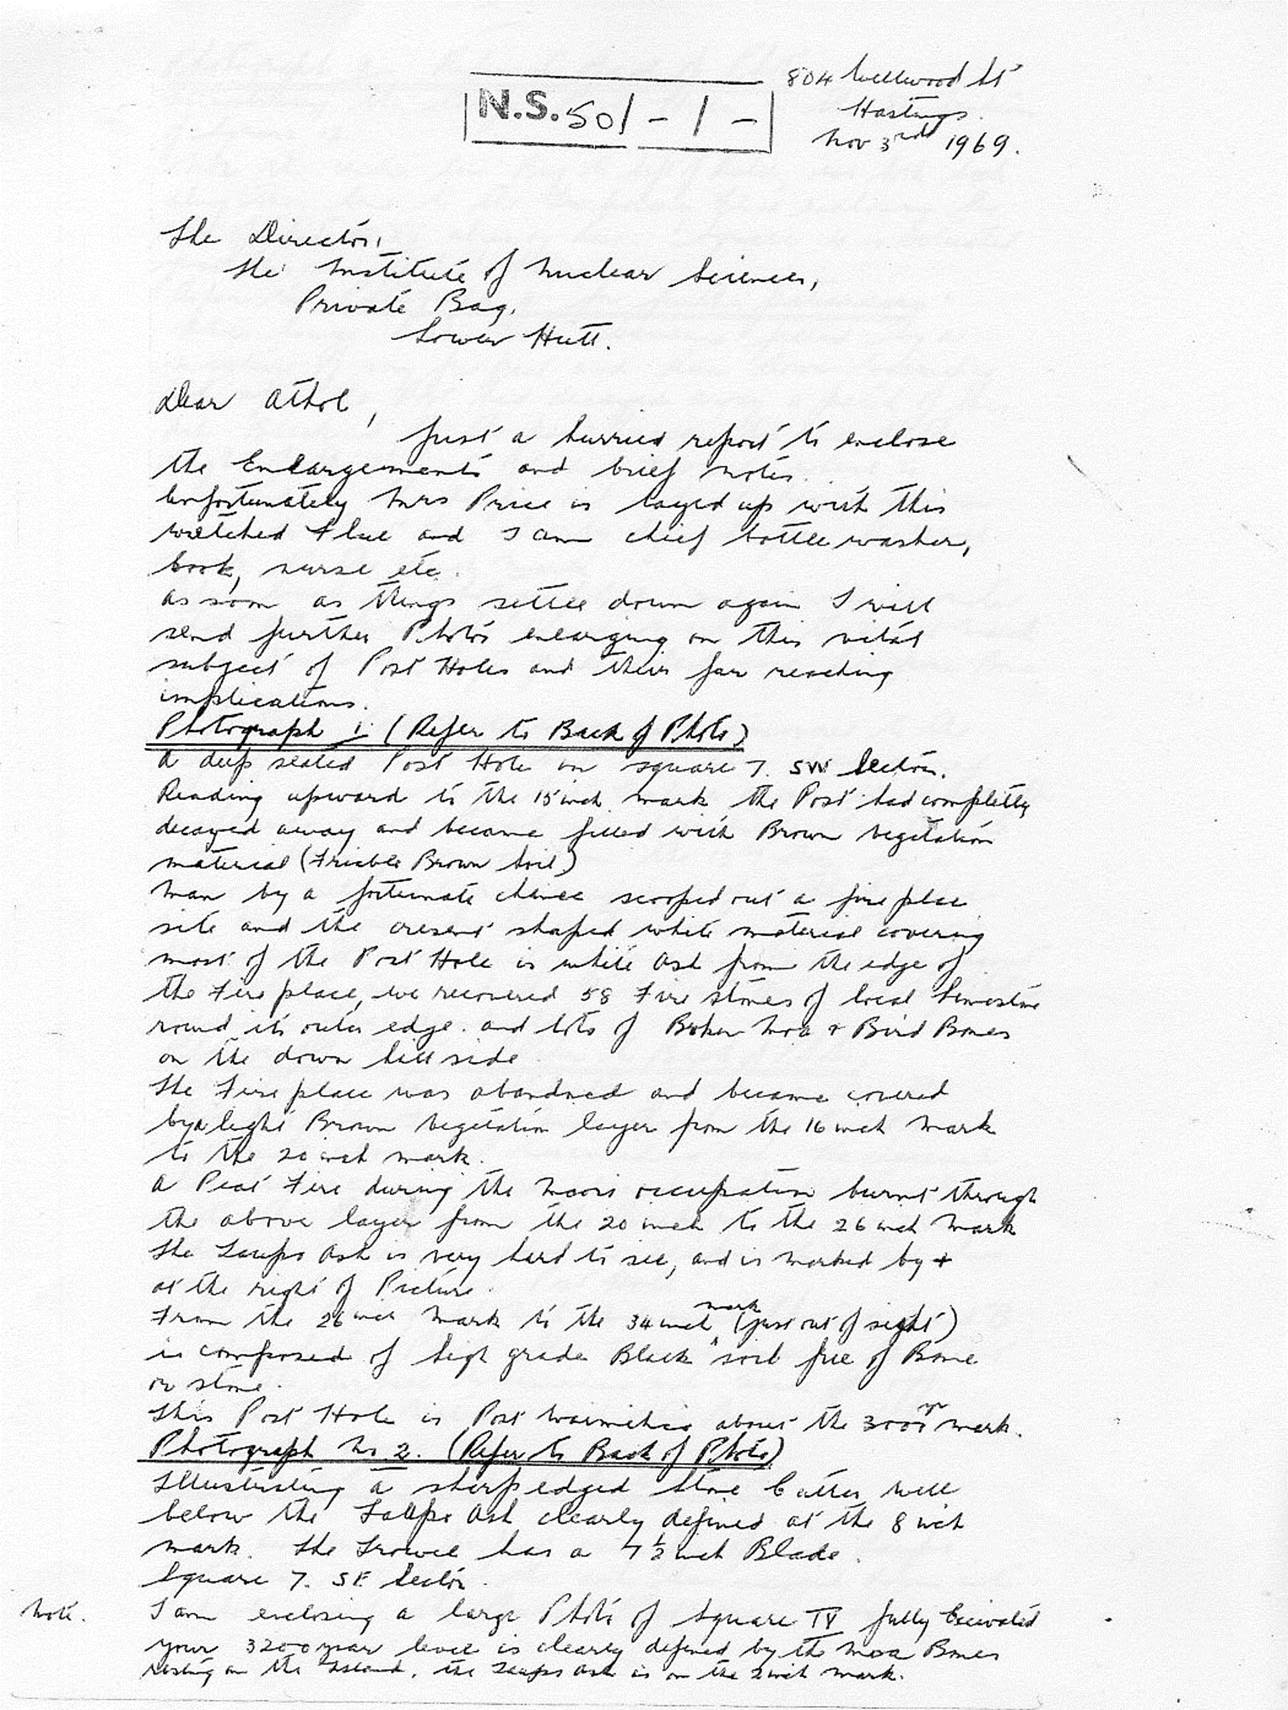 804 Wellwood St
Hastings.
Nov 3rd 1969.
N.S. 501 - 1 -
The Director,
The Institute of Nuclear Sciences,
Private Bag,
Lower Hutt.
Dear Athol,
Just a hurried report to enclose
the Enlargements and brief notes.
Unfortunately Mrs Price is layed up with this
wretched Flue and I am chief bottle washer,
cook, nurse etc.
As soon as things settle down again I will
send further Photos enlarging on this vital
subject of Post Holes and their far reaching
implications.
Photograph 1. (Refer to Back of Photo)
A deep seated Post Hole on square 7. SW Sector.
Reading upward to the 15 inch mark the Post had completly
decayed away and became filled with Brown vegetation
material (Friable Brown Soil)
Man by a fortunate chance scooped out a fire place
site and the cresent shaped white material covering
most of the Post Hole is white Ash from the edge of
the Fire place, we recovered 58 Fire stones of local limestone
round its outer edge. and lots of Broken Moa & Bird Bones
on the down hill side.
The Fire place was abandned and became covered
by a light Brown vegetation layer from the 16 inch mark
to the 20 inch mark.
A Peat Fire during the Maori occupation burnt through
the above layer from the 20 inch to the 26 inch mark
The Taupo Ash is very hard to see, and is marked by +
at the right of Picture.
From the 26 inch mark to the 34 inch mark (just out of sight)
is composed of high grade Black soil free of Bone
or stone.
This Post Hole is Post Waimihia about the 3000 yr mark.
Photograph No 2. (Refer to Back of Photo)
Illustrating a sharp edged Stone Cutter well
below the Taupo Ash clearly defined at the 8 inch
mark. The Trowel has a 7½ inch Blade.
Square 7. SE Sector.
Note. I am enclosing a large Photo of Square IV fully Excavated
your 3200 year level is clearly defined by the Moa Bones
resting on the Island, the Taupo Ash is on the 2 inch mark.